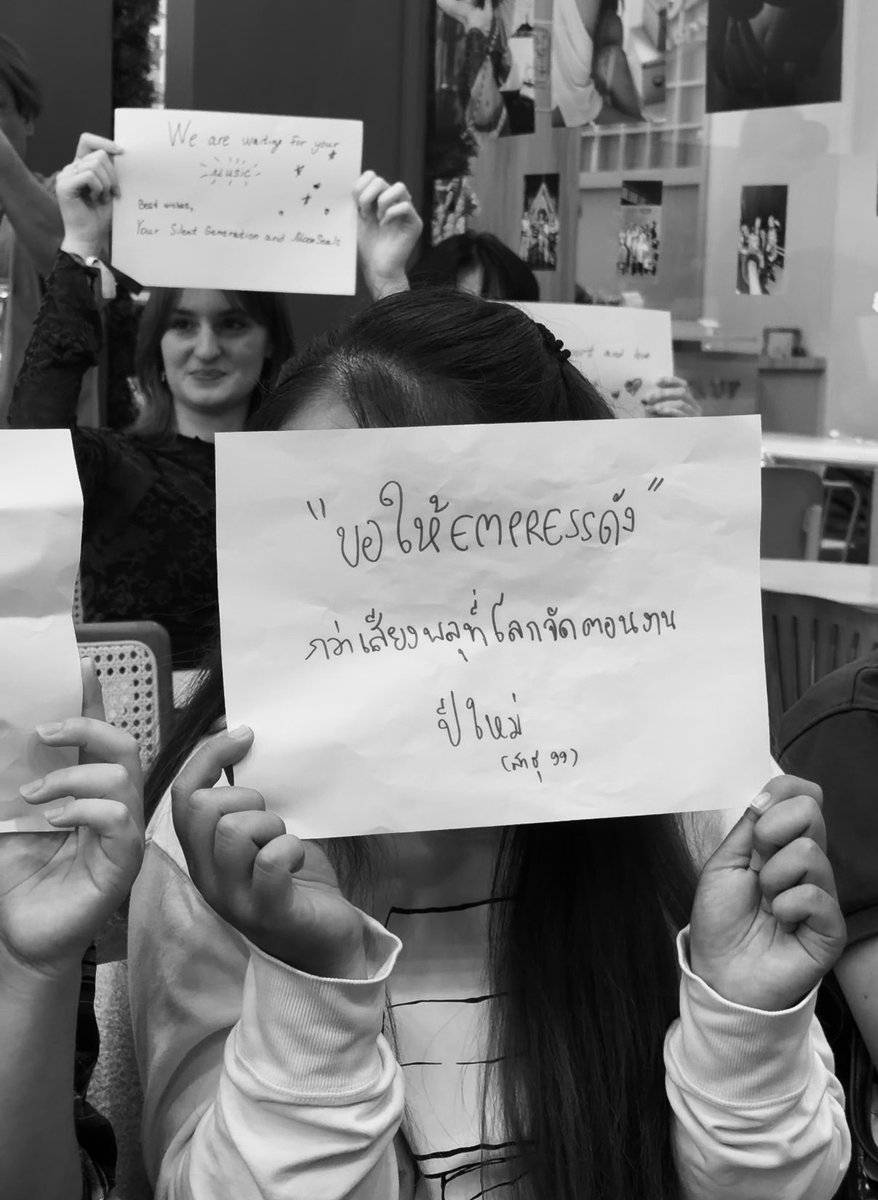 We are waiting for your
MUSIC
Best wishes,
Your Silent Generation and
and
"ขอให้EMPRESSดัง"
กว่าเสียงพลุที่โลกจัดตอนงาน
ปีใหม่
(สาธุ 99)